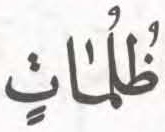 ظُلُمَاتٍ